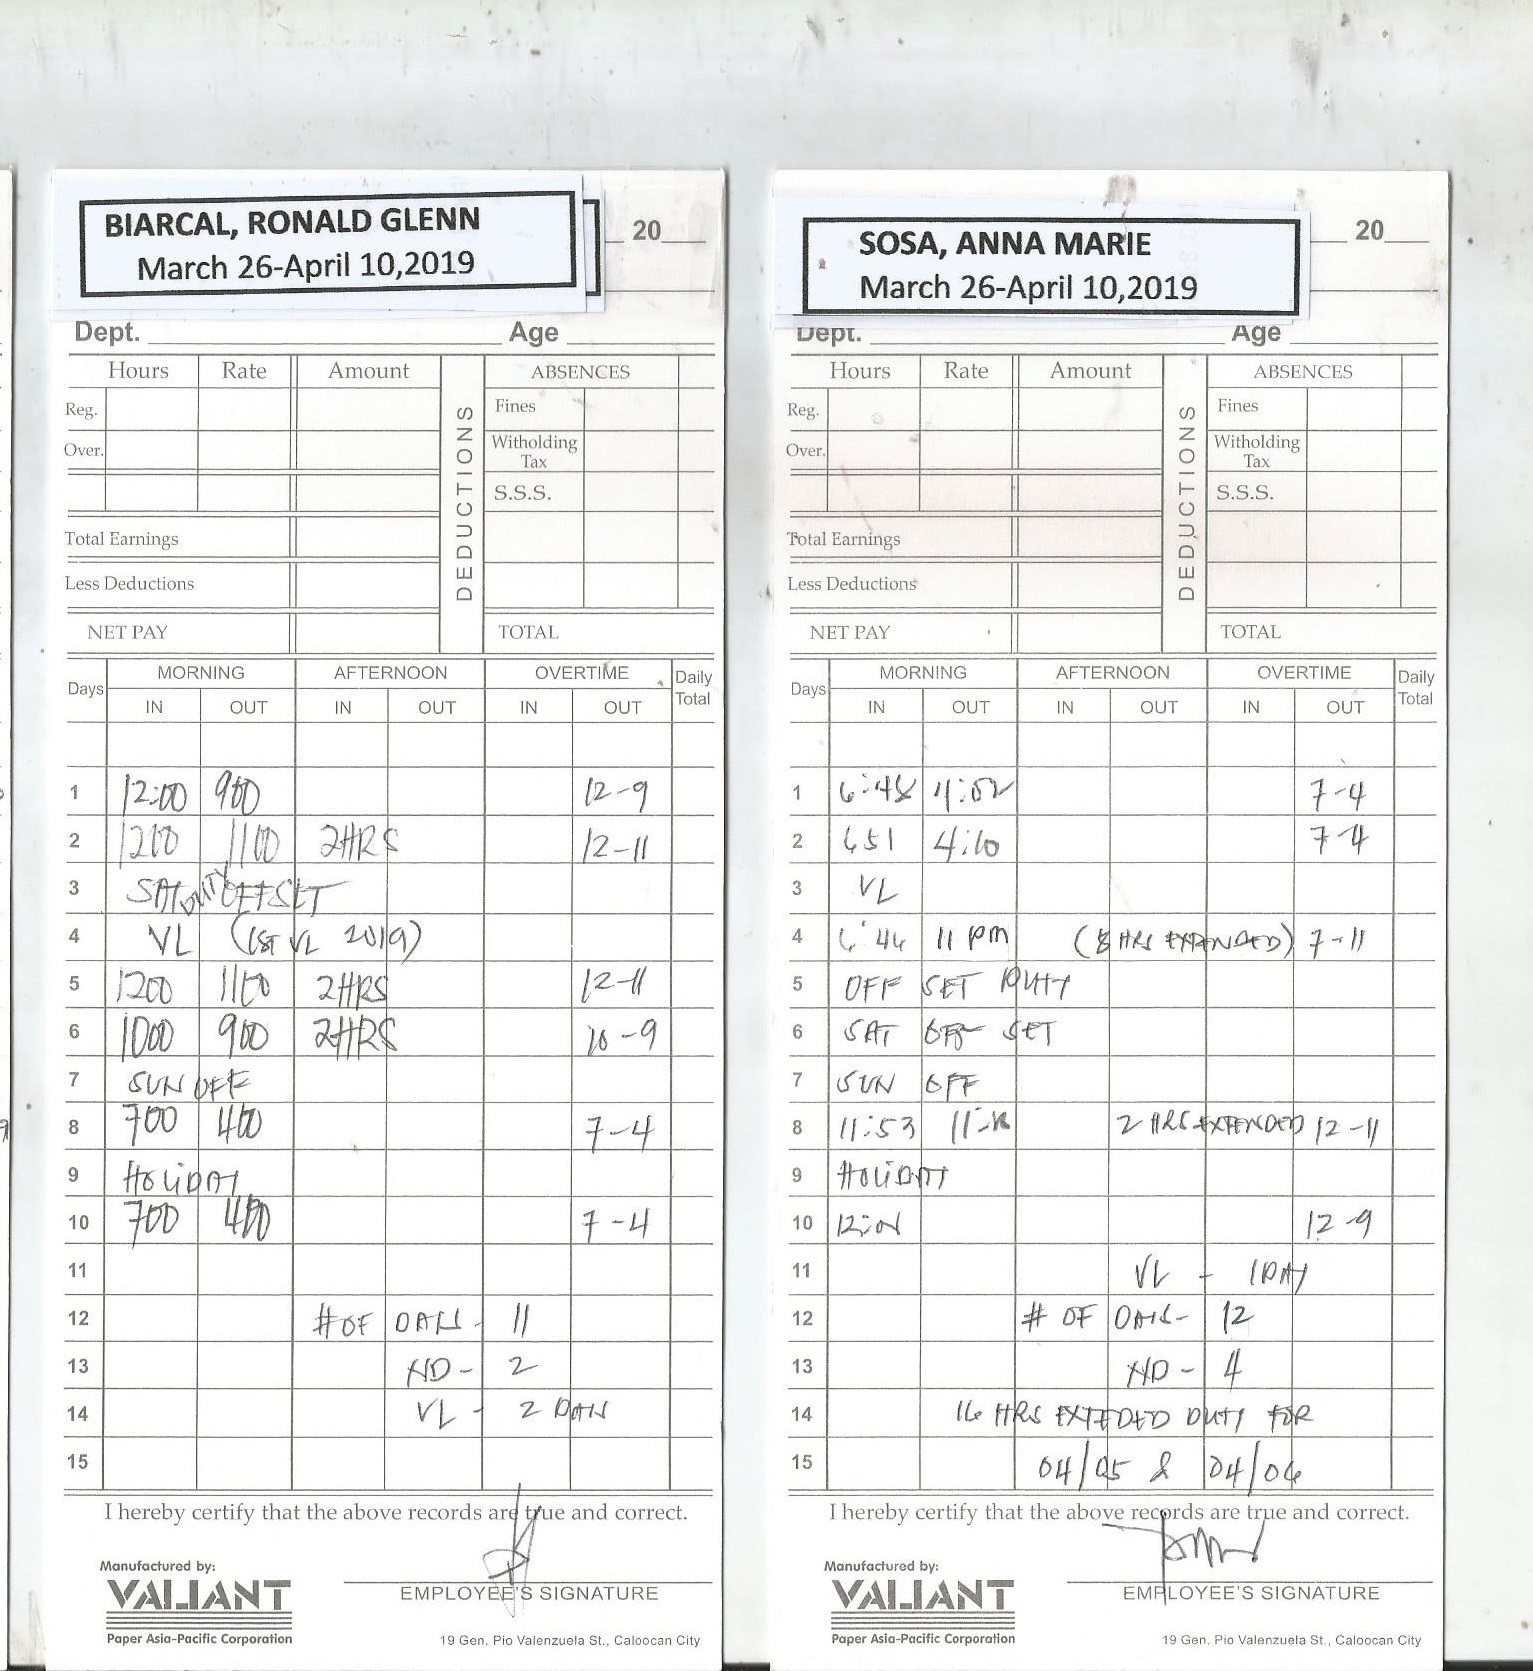 BIARCAL, RONALD GLENN
March 26-April 10,2019
20
Dept. Age
Hours Rate Amount DEDUCTIONS ABSENCES
Reg. Fines
Over. Witholding Tax
S.S.S.
Total Earnings
Less Deductions
NET PAY TOTAL
Days MORNING AFTERNOON OVERTIME Daily Total
IN OUT IN OUT IN OUT
1 12:00 900 12-9
2 1200 1100 2HRS 12-11
3 SAT DUTY OFFSET
4 VL (1ST VL 2019)
5 1200 1100 2HRS 12-11
6 1000 900 2HRS 10-9
7 SUN OFF
8 700 400 7-4
9 HOLIDAY
10 700 400 7-4
11
12 # OF DAYS - 11
13 ND - 2
14 VL - 2 DAYS
15
I hereby certify that the above records are true and correct.
Manufactured by:
VALIANT
EMPLOYEE'S SIGNATURE
Paper Asia-Pacific Corporation 19 Gen. Pio Valenzuela St., Caloocan City
SOSA, ANNA MARIE
March 26-April 10,2019
20
Dept. Age
Hours Rate Amount DEDUCTIONS ABSENCES
Reg. Fines
Over. Witholding Tax
S.S.S.
Total Earnings
Less Deductions
NET PAY TOTAL
Days MORNING AFTERNOON OVERTIME Daily Total
IN OUT IN OUT IN OUT
1 6:48 4:02 7-4
2 651 4:10 7-4
3 VL
4 6:46 11 PM (8 HRS EXTENDED) 7-11
5 OFF SET DUTY
6 SAT OFF SET
7 SUN OFF
8 11:53 2 HRS EXTENDED 12-11
9 HOLIDAY
10 12-9
11 VL - 1DAY
12 # OF DAYS - 12
13 ND - 4
14 16 HRS EXTEDED DUTY FOR
15 04/05 & 04/06
I hereby certify that the above records are true and correct.
Manufactured by:
VALIANT
EMPLOYEE'S SIGNATURE
Paper Asia-Pacific Corporation 19 Gen. Pio Valenzuela St., Caloocan City